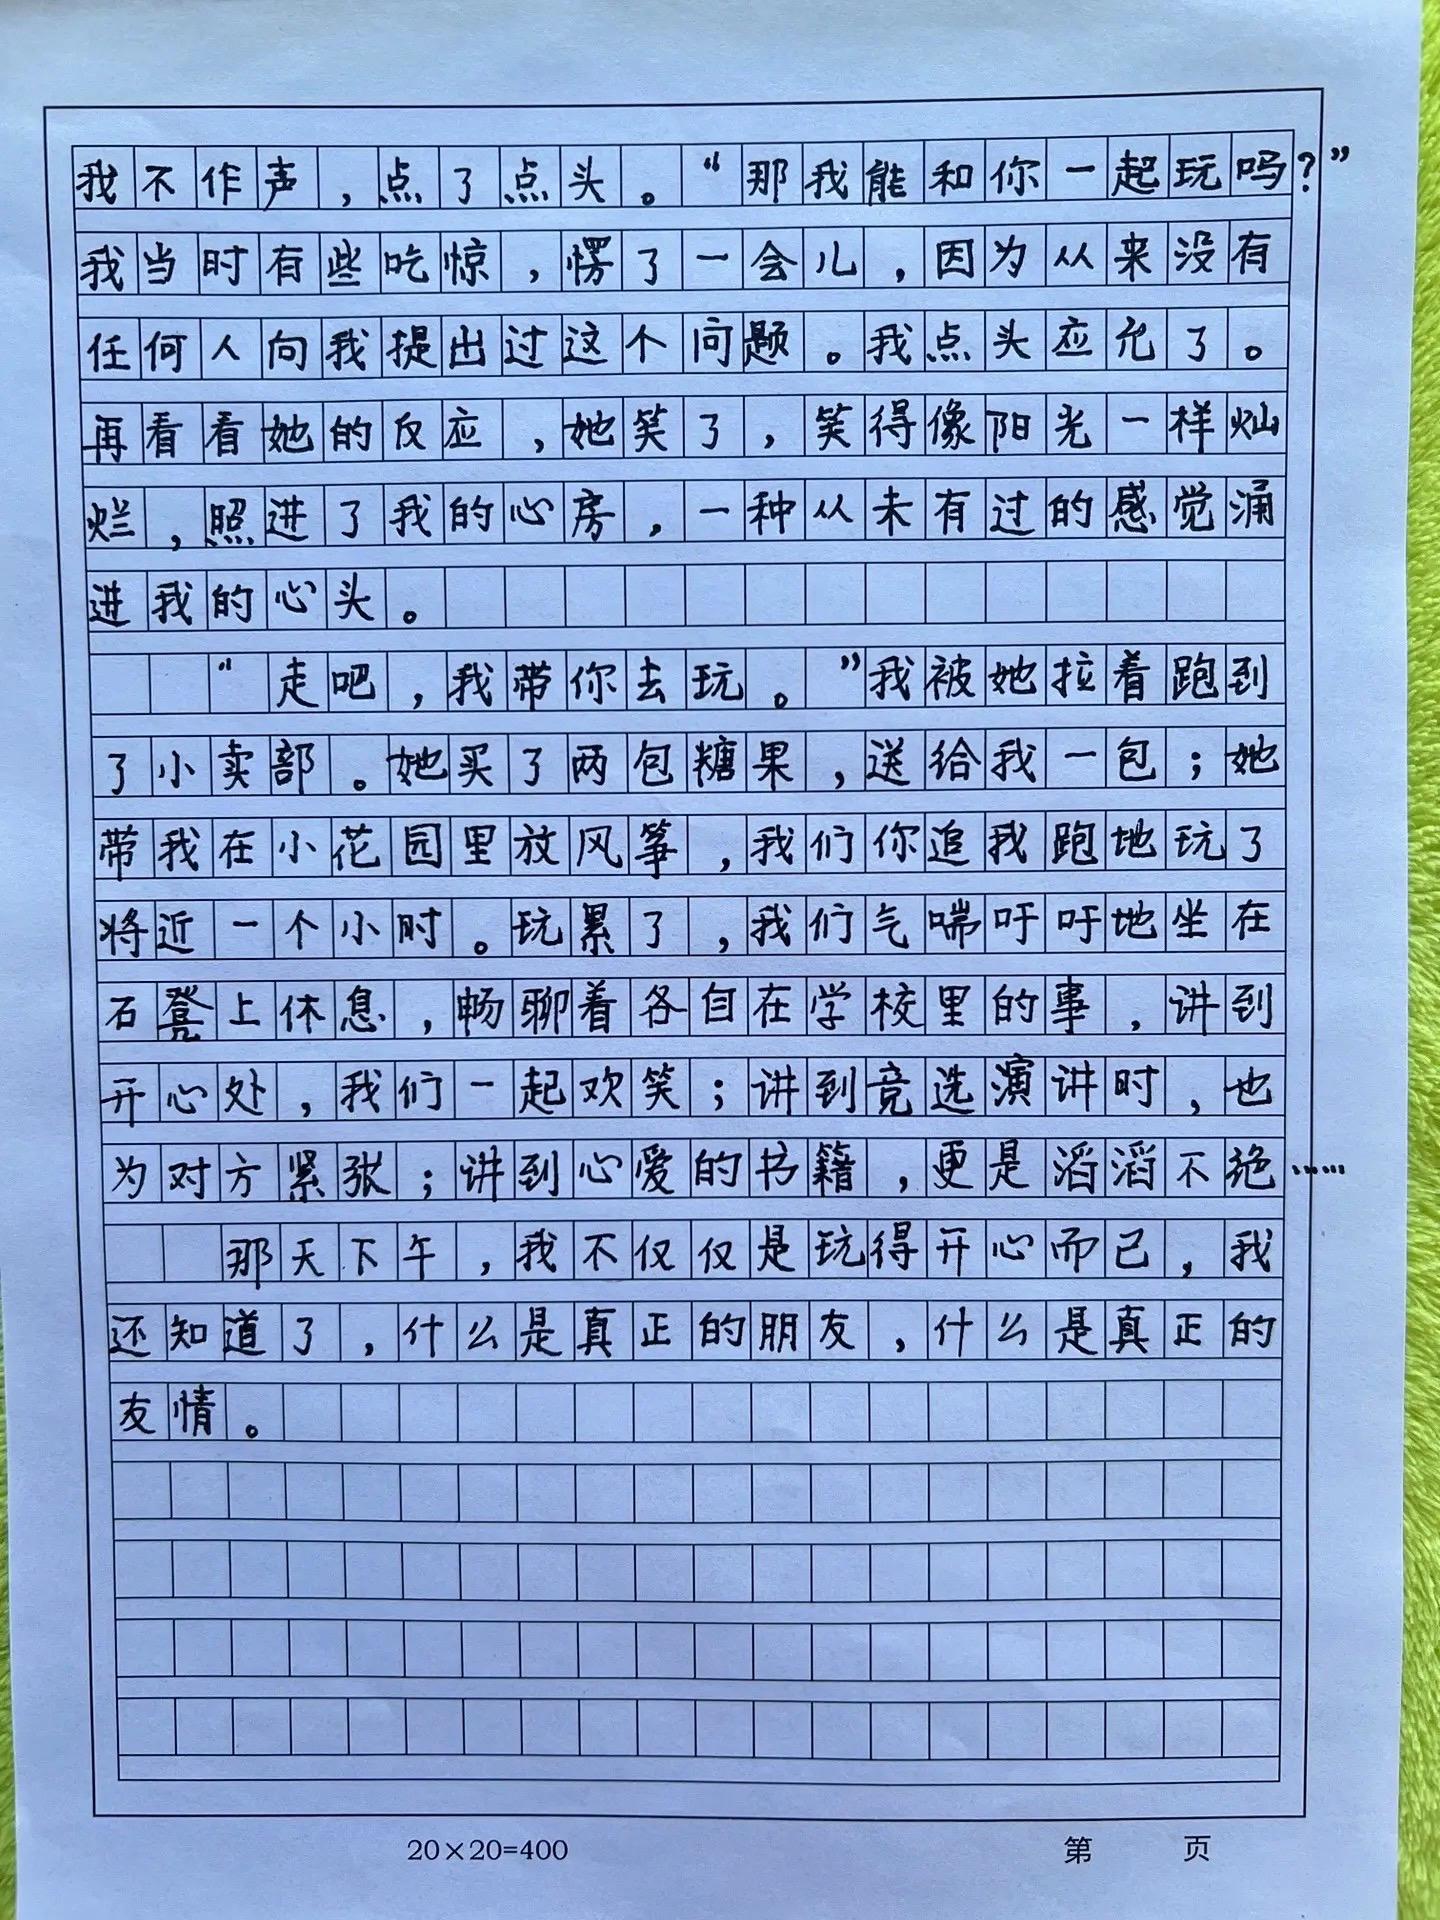 我不作声，点了点头。“那我能和你一起玩吗？”
我当时有些吃惊，愣了一会儿，因为从来没有
任何人向我提出过这个问题。我点头应允了。
再看看她的反应，她笑了，笑得像阳光一样灿
烂，照进了我的心房，一种从未有过的感觉涌
进我的心头。
“走吧，我带你去玩。”我被她拉着跑到
了小卖部。她买了两包糖果，送给我一包；她
带我在小花园里放风筝，我们你追我跑地玩了
将近一个小时。玩累了，我们气喘吁吁地坐在
石凳上休息，畅聊着各自在学校里的事，讲到
开心处，我们一起欢笑；讲到竞选演讲时，也
为对方紧张；讲到心爱的书籍，更是滔滔不绝……
那天下午，我不仅仅是玩得开心而已，我
还知道了，什么是真正的朋友，什么是真正的
友情。
20×20=400
第 页